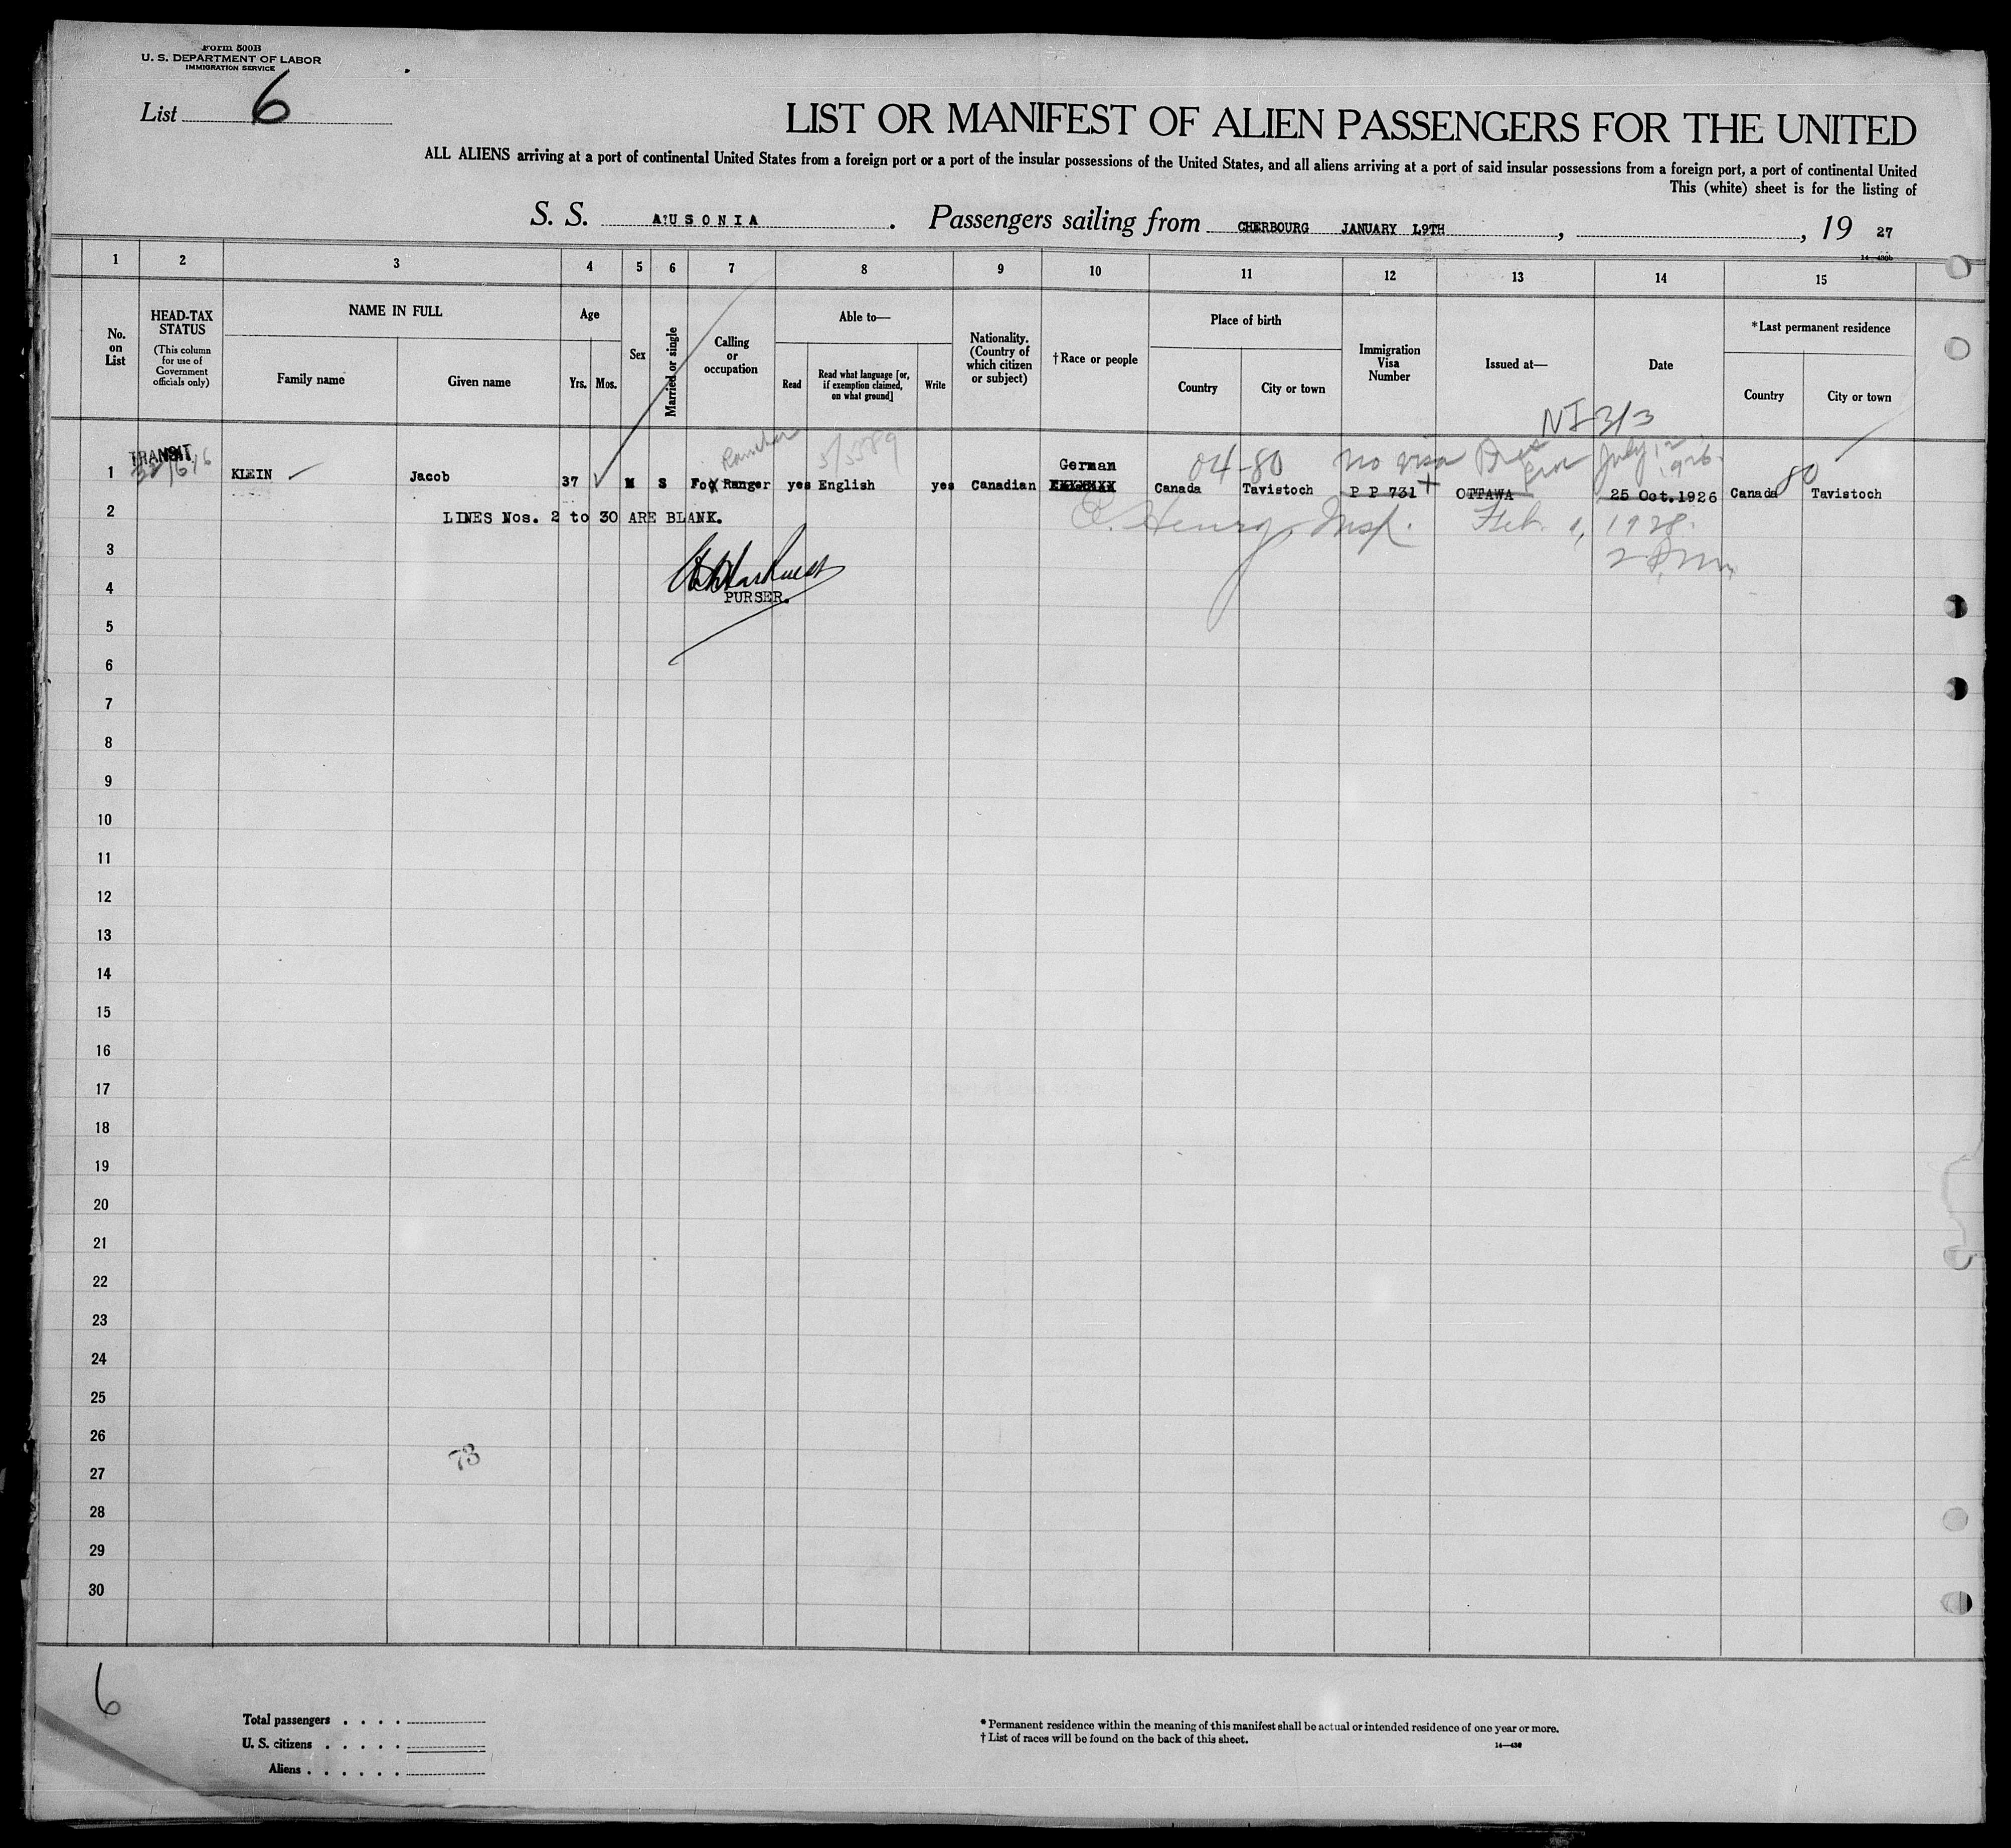 Form 500B
U. S. DEPARTMENT OF LABOR
IMMIGRATION SERVICE
List 6
LIST OR MANIFEST OF ALIEN PASSENGERS FOR THE UNITED
ALL ALIENS arriving at a port of continental United States from a foreign port or a port of the insular possessions of the United States, and all aliens arriving at a port of said insular possessions from a foreign port, a port of continental United
This (white) sheet is for the listing of
S. S. AUSONIA. Passengers sailing from CHERBOURG JANUARY 19TH, , 19 27
14—430b
1 2 3 4 5 6 7 8 9 10 11 12 13 14 15
No. on List
HEAD-TAX STATUS
(This column for use of Government officials only)
NAME IN FULL
Family name Given name
Age
Yrs. Mos.
Sex
Married or single
Calling or occupation
Able to—
Read
Read what language [or, if exemption claimed, on what ground]
Write
Nationality. (Country of which citizen or subject)
†Race or people
Place of birth
Country City or town
Immigration Visa Number
Issued at—
Date
*Last permanent residence
Country City or town
NI 3/3
TRANSIT
5/5589
German
04-80 no visa July 12 1926. 80
1 KLEIN Jacob 37 M S Fox Ranger yes English yes Canadian Canada Tavistoch P P 731 OTTAWA 25 Oct.1926 Canada Tavistoch
2 LINES Nos. 2 to 30 ARE BLANK.
C. Henry, Insp. Feb. 1, 1928.
3
2 P.m.
4 PURSER.
5
6
7
8
9
10
11
12
13
14
15
16
17
18
19
20
21
22
23
24
25
26
73
27
28
29
30
6
Total passengers . . . .
U. S. citizens . . . . .
Aliens . . . . . .
* Permanent residence within the meaning of this manifest shall be actual or intended residence of one year or more.
† List of races will be found on the back of this sheet.
14—430